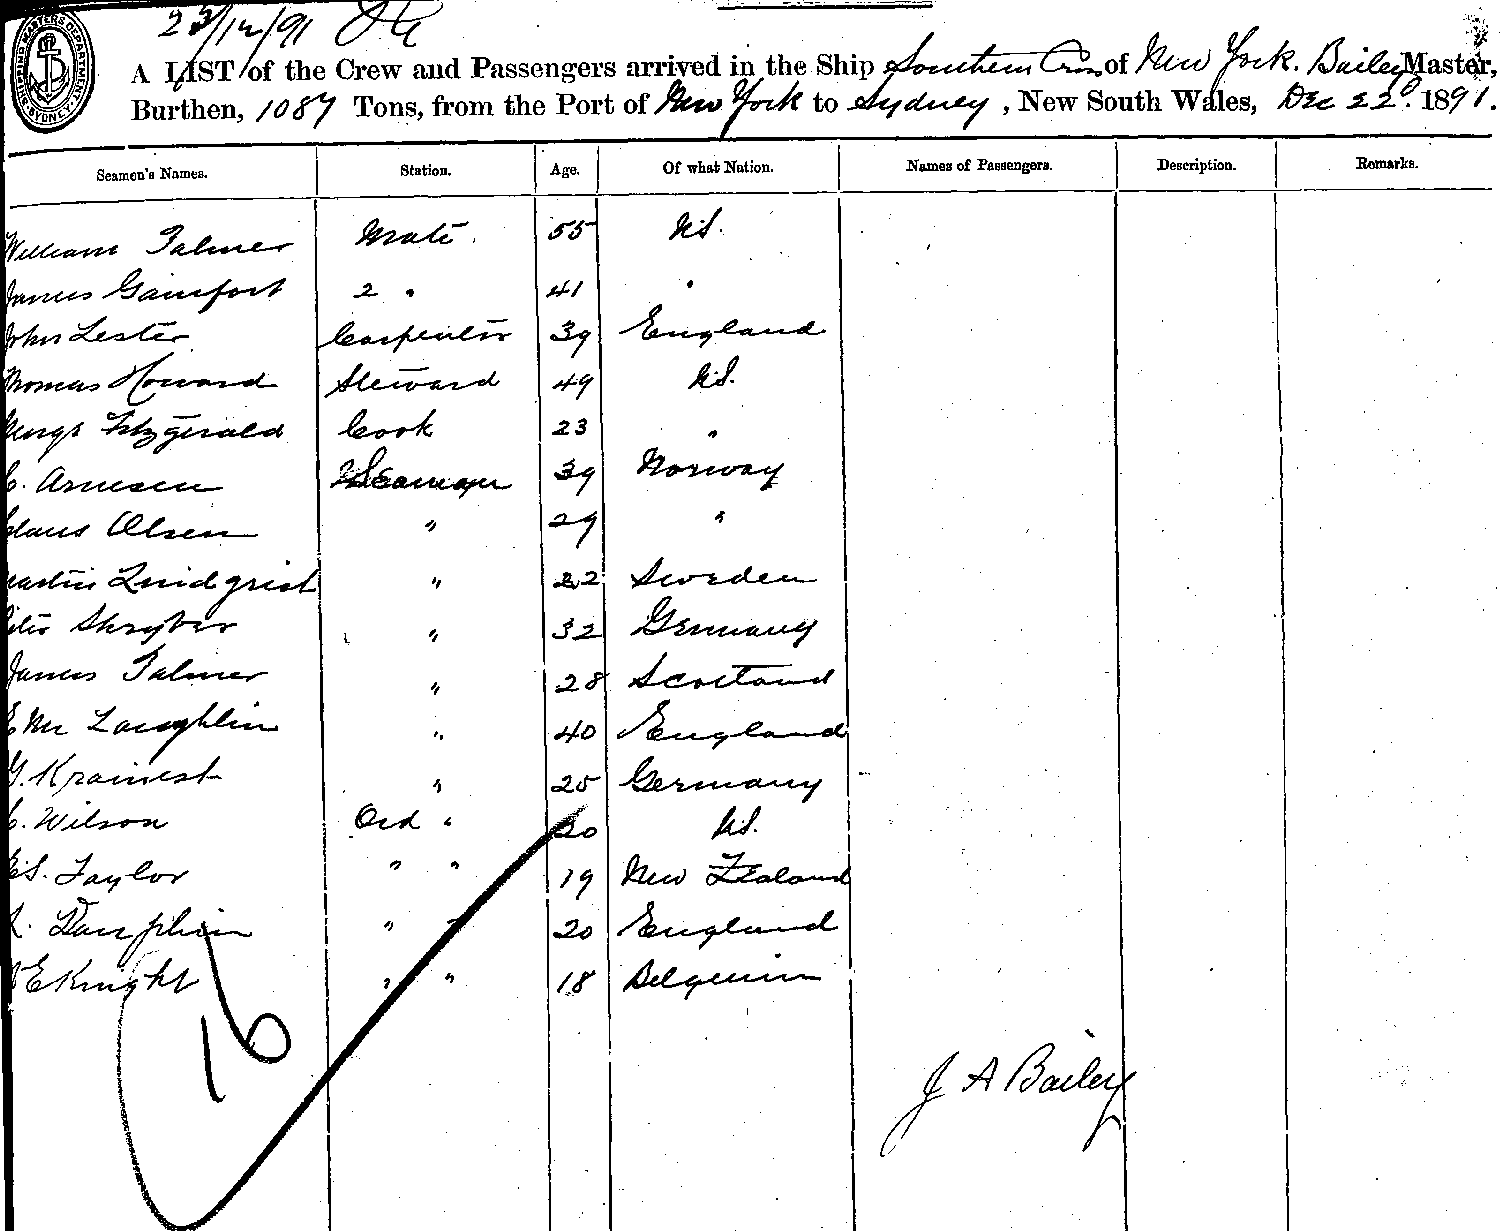 23/12/91
SHIPPING MASTERS DEPARTMENT SYDNEY
A LIST of the Crew and Passengers arrived in the Ship Southern Cross of New York. Bailey Master,
Burthen, 1087 Tons, from the Port of New York to Sydney, New South Wales, Dec 22d. 1891.
Seamen's Names. Station. Age. Of what Nation. Names of Passengers. Description. Remarks.
William Palmer Mate 55 US.
James Gainfort 2 " 41 "
John Lester Carpenter 39 England
Thomas Howard Steward 49 US.
George Fitzgerald Cook 23 "
C. Arnesen Seaman 39 Norway
Claus Olsen " 29 "
Martin Lindgrist " 22 Sweden
Peter " 32 Germany
James Palmer " 28 Scotland
E Mc Laughlin " 40 England
G. " 25 Germany
C. Wilson Ord " 20 US.
S. Taylor " " 19 New Zealand
Dauphin " " 20 England
E Knight " " 18 Belgeuim
16
J A Bailey